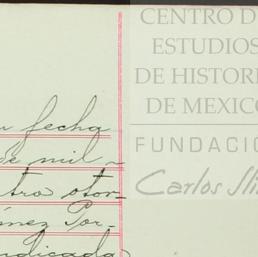 CENTRO D
ESTUDIOS
DE HISTORI
DE MEXICO
FUNDACIÓ
Carlos Sli
u fecha
de mil
tro otor-
ómez Por-
ndicada